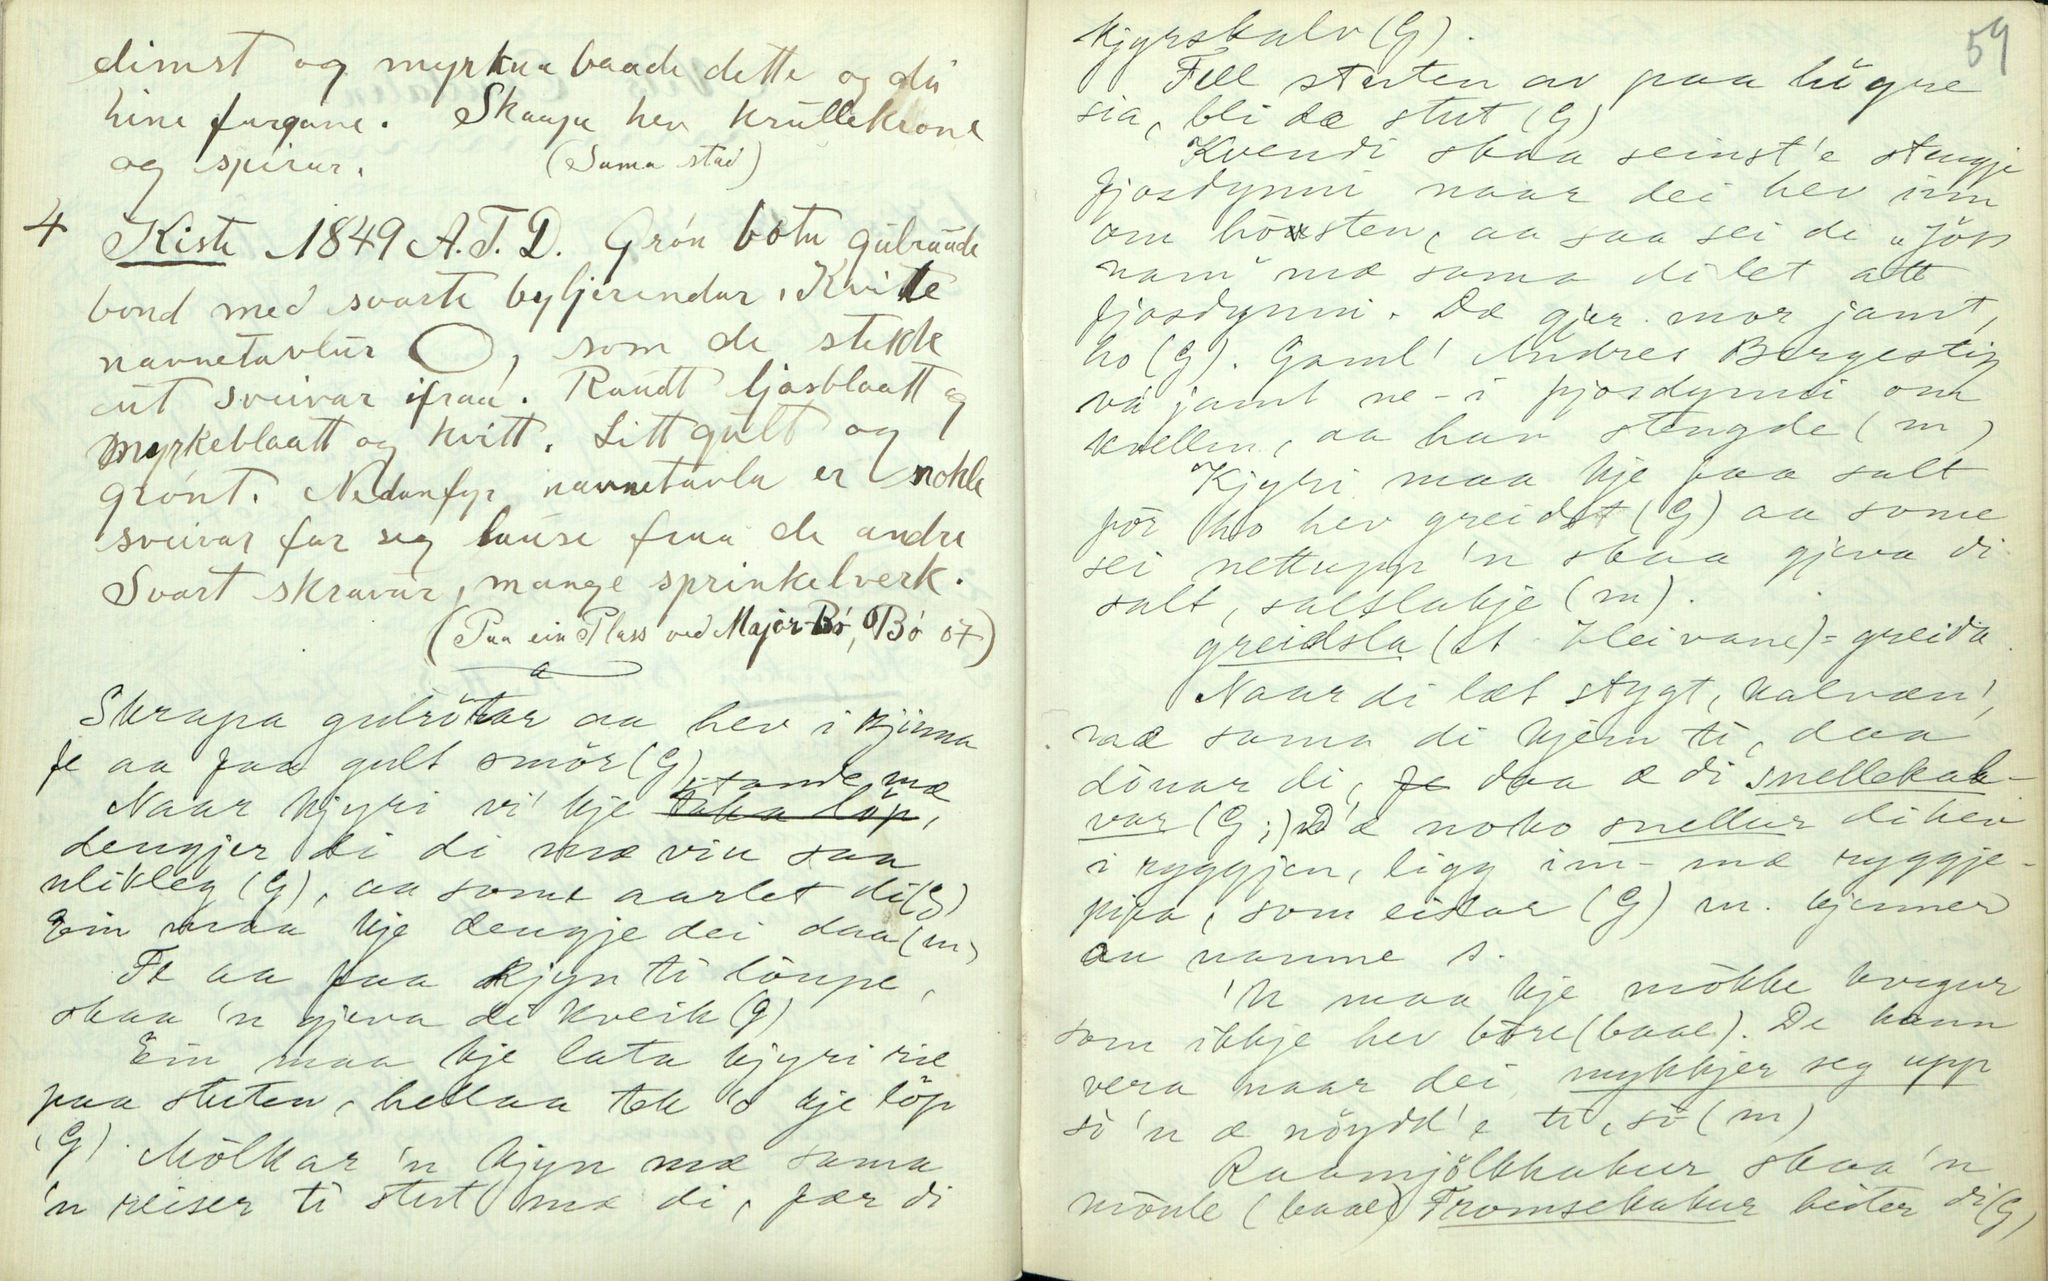 dimst og myrkua baade dette og dei
hine fargane. Skaapa hev krullekrone
og spirur. (Sama stad)
4 Kiste 1849 A.T.D. Grön botn gulraude
bond med svarte bylgjerendar. Kvite
navnetavlur , som de stikk
ut sveivar ifraa. Raudt ljosblaatt og
myrkeblaatt og kvitt. Litt gult og
grönt. Nedanfyr navnetavla er nokle
sveivar for seg lause fraa de andre
Svart skravur, mange sprinkelverk.
(Paa ein Plass ved Major-Bö, Bö 07)
Skrapa gulrötar aa hev i kjinna
fe aa faa gult smör (G)
Naar kjyri vi' kje taka löp, stande mæ
dengjer di di mæ viu saa
ulikleg (G), aa some aarlet di (G)
Ein maa kje dengje dei daa (m)
Fe aa faa kjyn ti löupe,
skaa 'n gjeva di kveik (G)
Ein maa kje lata kjyri rie
paa stuten, hellaa tek 'o kje löp
(G). Mölkar 'n kjyn mæ sama
'n reiser ti stut mæ di, fær di
59
kjyrskalv (G).
Fell stuten av paa högre
sia, bli dæ stut (G)
Kvendi skaa seinst'e stengje
fjosdynni naar dei hev inn
om hausten, aa saa sei di "Jöss
nam" mæ sama di let att
fjosdynni. Dæ gjer mor jamt,
ho (G). Gaml' Andres Bergestig
va jamt ne-i fjosdynni om
kvellen, aa han stengde (m)
Kjyri maa kje faa salt
för ho hev greidst (G) aa some
sei nettupp 'n skaa gjeva di
salt, saltslakje (m).
greidsla (et Kleivane) = greida
Naar di læt stygt, kalvæn',
mæ sama di kjem ti, daa
dönar di, fe daa æ di snellekal-
var (G;) D'æ noko snellur di hev
i ryggjen, ligg inn-mæ ryggje-
pipa, som eistar (G) m. kjenner
au namne s.
'N maa kje mökke kvigur
som ikkje hev böre (baae). De kann
vera naar dei mykkjer seg upp
sö 'n æ nöydd'e ti, sö (m)
Raamjölkkakur skaa 'n
mönle (baae) Fromsekakur heiter di (G)